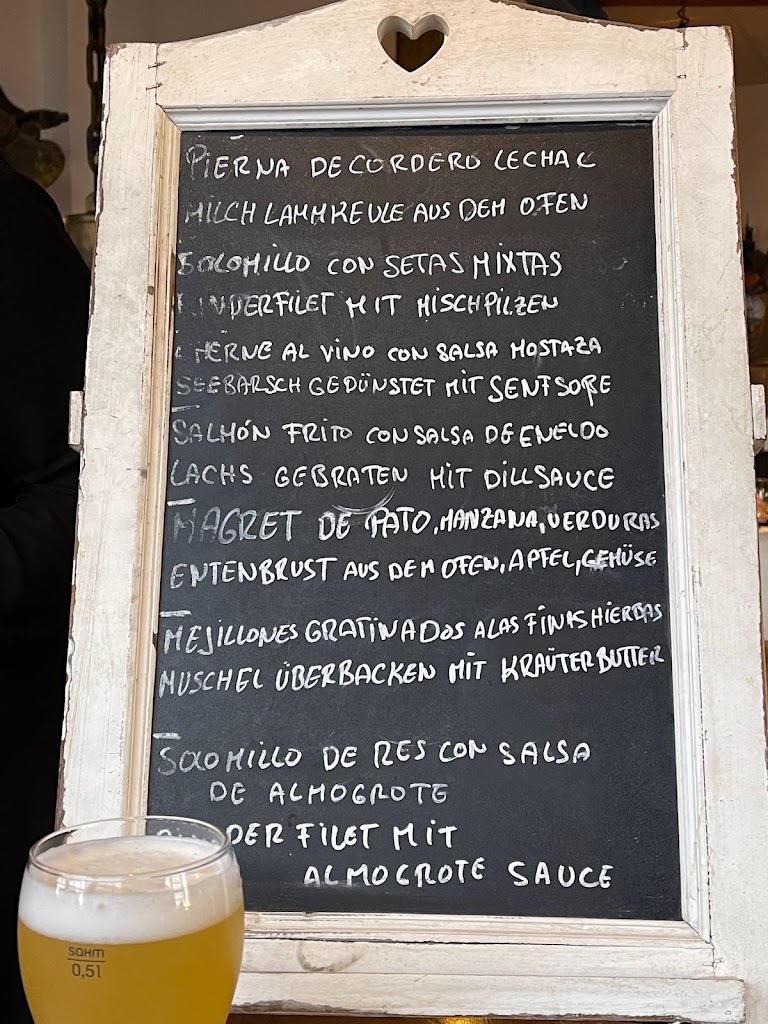 PIERNA DE CORDERO LECHAL
MILCH LAMMKEULE AUS DEM OFEN
SOLOMILLO CON SETAS MIXTAS
RINDERFILET MIT MISCHPILZEN
CHERNE AL VINO CON SALSA MOSTAZA
SEEBARSCH GEDÜNSTET MIT SENFSOßE
SALMÓN FRITO CON SALSA DE ENELDO
LACHS GEBRATEN MIT DILLSAUCE
MAGRET DE PATO, MANZANA, VERDURAS
ENTENBRUST AUS DEM OFEN, APFEL, GEMÜSE
MEJILLONES GRATINADOS A LAS FINAS HIERBAS
MUSCHEL ÜBERBACKEN MIT KRAÜTERBUTTER
SOLOMILLO DE RES CON SALSA
DE ALMOGROTE
DER FILET MIT
ALMOGROTE SAUCE
SAHM
0,5l